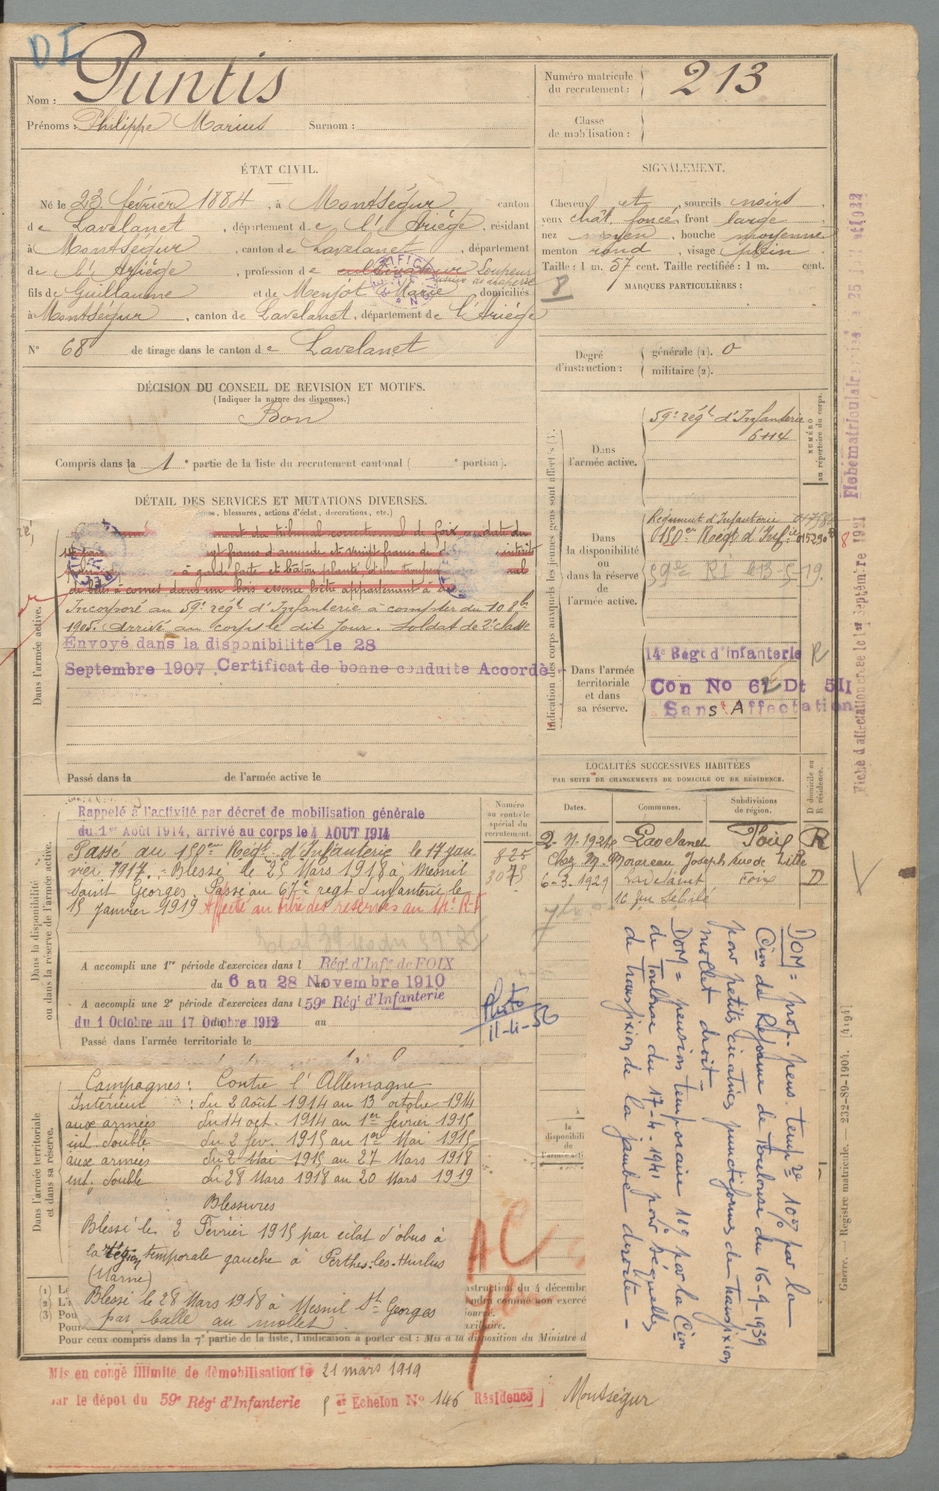 DI
Nom : Puntis
Prénoms : Philippe Marius Surnom :
ÉTAT CIVIL.
Né le 23 février 1884, à Montségur canton
de Lavelanet, département de l'Ariège, résidant
à Montségur, canton de Lavelanet, département
de l'Ariège, profession de cultivateur
fils de Guillaume et de Menjot Marie domiciliés
à Montségur, canton de Lavelanet, département de l'Ariège
N° 68 de tirage dans le canton de Lavelanet
DÉCISION DU CONSEIL DE REVISION ET MOTIFS.
(Indiquer la nature des dispenses.)
Bon
Compris dans la 1e partie de la liste du recrutement cantonal ( e portion).
DÉTAIL DES SERVICES ET MUTATIONS DIVERSES.
, blessures, actions d'éclat, décorations, etc.)
Dans l'armée active.
ment du tribunal correctionnel de foix
gt francs d'amende et vingt francs de
à garde faite et bâton planté
de bêtes à cornes dans un bois appartenant à
Incorporé au 59e régt d'Infanterie à compter du 10 8bre
1905. Arrivé au corps le dit jour. Soldat de 2e classe
Envoyé dans la disponibilité le 28
Septembre 1907. Certificat de bonne conduite Accordé
Passé dans la de l'armée active le
Dans la disponibilité ou dans la réserve de l'armée active.
Rappelé à l'activité par décret de mobilisation générale
du 1er Août 1914, arrivé au corps le 4 AOUT 1914
Passé au 150eme Régt d'Infanterie le 17 jan
vier 1917. Blessé le 28 Mars 1918 à Mesnil
Saint Georges. Passé au 67e régt d'infanterie le
15 janvier 1919 Affecté au titre des réserves au
A accompli une 1re période d'exercices dans l Régt d'Infie de FOIX
du 6 au 28 Novembre 1910
A accompli une 2e période d'exercices dans l 59e Régt d'Infanterie
du 1 Octobre au 17 Octobre 1912 au
Passé dans l'armée territoriale le
Numéro au contrôle spécial du recrutement.
825
3075
11-4-50
Dans l'armée territoriale et dans sa réserve.
Campagnes : Contre l'Allemagne
Intérieur : du 2 août 1914 au 13 octobre 1914
aux armées du 14 oct. 1914 au 1er février 1915
int. double du 2 fév. 1915 au 1er Mai 1915
aux armées du 2 Mai 1915 au 27 Mars 1918
int. double du 28 Mars 1918 au 20 Mars 1919
Blessures
Blessé le 2 Février 1915 par éclat d'obus à
la région temporale gauche à Perthes-les-Hurlus
(Marne)
Blessé le 28 Mars 1918 à Mesnil St Georges
par balle au mollet
Pour ceux compris dans la 7e partie de la liste, l'indication à porter est : Mis à la disposition du Ministre d
Mis en congé illimité de démobilisation le 21 mars 1919
par le dépot du 59e Régt d'Infanterie 5 eme Echelon N° 146 Résidence Montségur
Numéro matricule du recrutement : 213
Classe de mobilisation :
SIGNALEMENT.
Cheveux et, sourcils noirs,
yeux chât. foncé, front large
nez moyen, bouche moyenne
menton rond, visage plein
Taille : 1 m. 57 cent. Taille rectifiée : 1 m. cent.
MARQUES PARTICULIÈRES :
Degré d'instruction : générale (1). 0
militaire (2).
Indication des corps auxquels les jeunes gens sont affectés
NUMÉRO au répertoire du corps.
Dans l'armée active.
59e régt d'Infanterie
6114
Dans la disponibilité ou dans la réserve de l'armée active.
Régiment d'Infanterie
150eme Régt d'Infie
59e RI
Dans l'armée territoriale et dans sa réserve.
14e Régt d'Infanterie
Con No 62 Dt 5II
Sans Affectation
LOCALITÉS SUCCESSIVES HABITÉES
PAR SUITE DE CHANGEMENTS DE DOMICILE OU DE RÉSIDENCE.
Dates. Communes. Subdivisions de région. D domicile ou R résidence.
Lavelanet Foix R
Chez M. Joseph rue de
6-3-1929 Lavelanet Foix D
DOM = prop. pens. tempre 10% par la
Con de Réforme de Toulouse du 16-9-1939
pour petites cicatrices punctiformes de transfixion
mollet droit.
DOM = pension temporaire 10% par la Con
de Toulouse du 17-4-1941 pour séquelles
de transfixion de la jambe droite -
AC
Fiche d'affectation créée le 1er Septembre 1921
Guerre. — Registre matricule. — 232-89-1904. [4191]